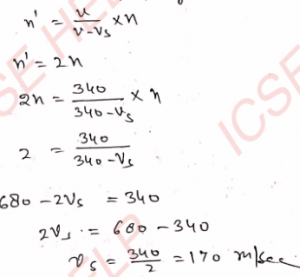 n' = v/(v-vs) × n
n' = 2n
2n = 340/(340-vs) × n
2 = 340/(340-vs)
680 - 2vs = 340
2vs = 680 - 340
vs = 340/2 = 170 m/sec
ICSE HELP
ICSE HE